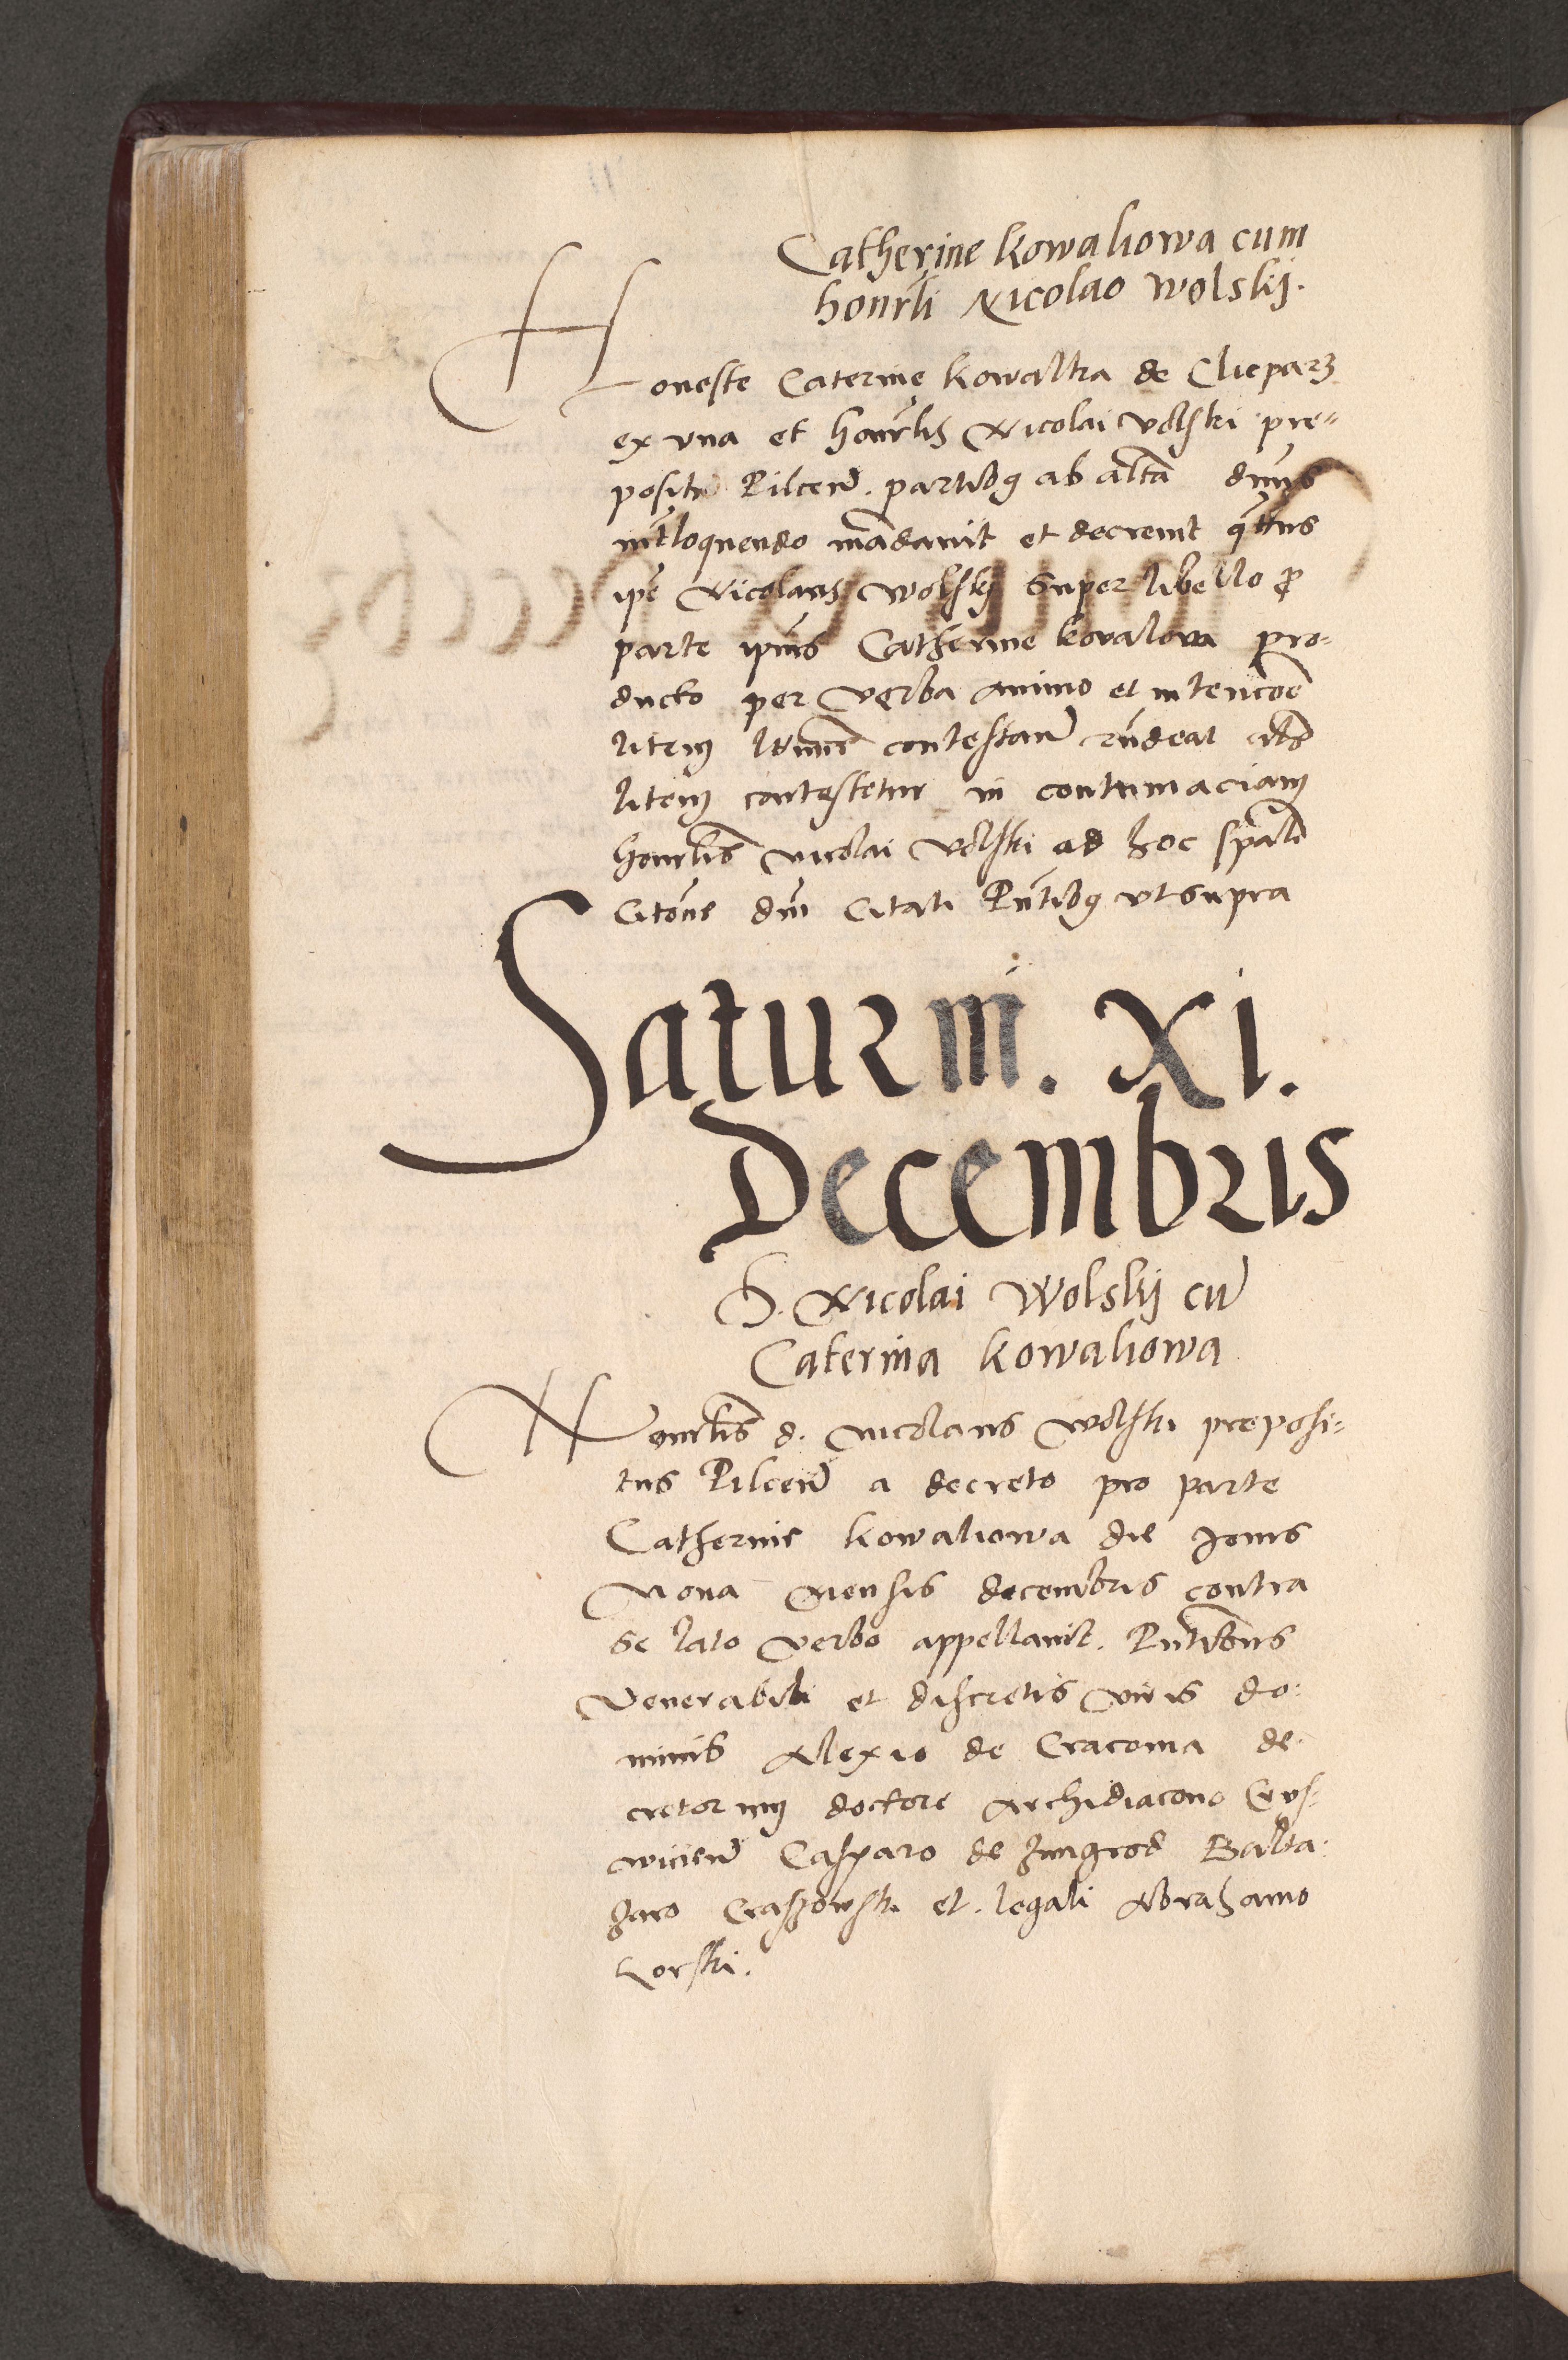 Catherine Kowaliowa cum
honrli Nicolao Wolskij.
Honeste Caterine Kowalka de Clieparz
ex una et honrlis Nicolai Volski pre=
positi Pilcen̄. partibꝫ ab altā dnūs
int̄loquendo mādavit et decrevit q̄tus
ip̄e Nicolaus Wolskj super libello ꝓ
parte ipīus Catherine Kovalowa pro-
ducto per verba animo et intencōe
litem contestan̄ rn̄deat
litem contestetur in contumaciam
honrlis Nicolai Volski ad hoc spāli
Citōne dm̄ Citati Pn̄tibꝫ ut supra
Saturni. XI.
Decembris
D. Nicolai Wolskij cū
Caterina Kowaliowa
Honrlis d. Nicolaus Wolski preposi=
tus Pilcen̄ a decreto pro parte
Catherine Kowaliowa die Jovis
Nona mensis decembris contra
se lato verbo appellavit. Pn̄tibus
Venerabili et discretis viris do-
minis Alexio de Cracovia de-
cretorum doctore Archidiacono Crus-
wicien̄ Casparo de Balta-
zaro et. legali Abrahamo